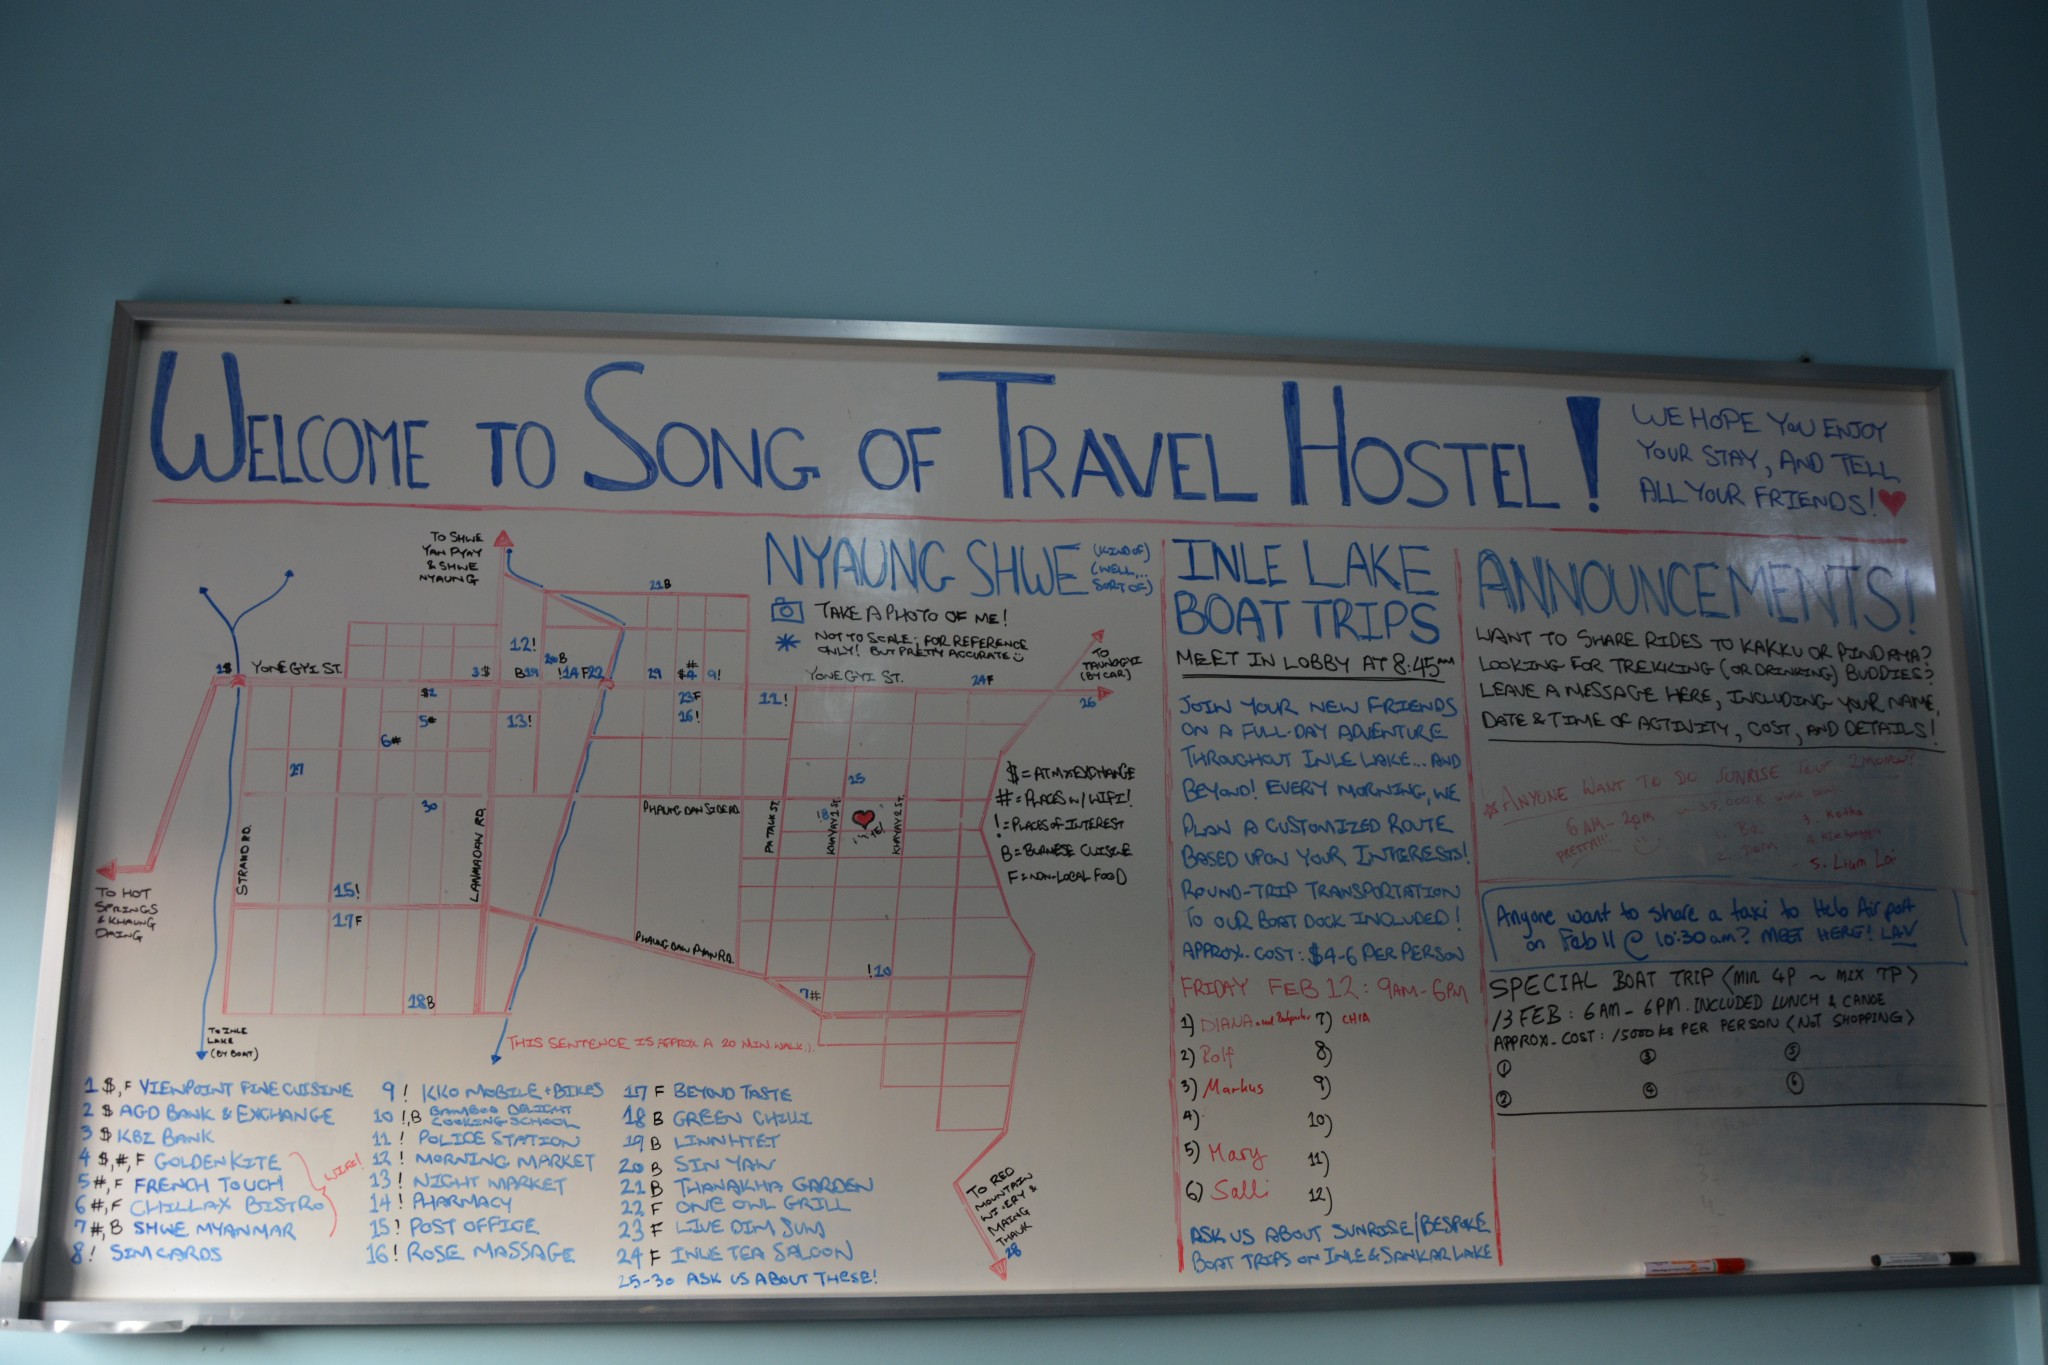 WELCOME TO SONG OF TRAVEL HOSTEL!
WE HOPE YOU ENJOY
YOUR STAY, AND TELL
ALL YOUR FRIENDS!
TO SHWE
YAN PYAY
& SHWE
NYAUNG
NYAUNG SHWE
(KIND OF)
(WELL...
SORT OF)
TAKE A PHOTO OF ME!
NOT TO SCALE; FOR REFERENCE
ONLY! BUT PRETTY ACCURATE
21B
12!
20B
1$
YONE GYI ST.
3$
B19
!14
F22
29
#
$4
9!
YONE GYI ST.
24F
TO
TAUNGGYI
(BY CAR)
26
$2
5#
6#
13!
23F
16!
11!
27
30
25
PHAUNG DAW SIDE RD.
!8
STRAND RD.
LANMADAW RD.
PATAUK ST.
KHAYAY 1 ST.
KHAYAY 2 ST.
$ = ATM & EXCHANGE
# = PLACES W/ WIFI!
! = PLACES OF INTEREST
B = BURMESE CUISINE
F = NON-LOCAL FOOD
TO HOT
SPRINGS
& KHAUNG
DAING
15!
17F
PHAUNG DAW PYAN RD.
!10
7#
18B
TO INLE
LAKE
(BY BOAT)
THIS SENTENCE IS APPROX A 20 MIN WALK.
TO RED
MOUNTAIN
WINERY &
MAING
THAUK
28
1 $, F VIEWPOINT FINE CUISINE
2 $ AGD BANK & EXCHANGE
3 $ KBZ BANK
4 $,#,F GOLDEN KITE
5 #, F FRENCH TOUCH
6 #, F CHILLAX BISTRO
7 #, B SHWE MYANMAR
8 ! SIM CARDS
WIFI!
9 ! KKO MOBILE + BIKES
10 !,B BAMBOO DELIGHT
COOKING SCHOOL
11 ! POLICE STATION
12 ! MORNING MARKET
13 ! NIGHT MARKET
14 ! PHARMACY
15 ! POST OFFICE
16 ! ROSE MASSAGE
17 F BEYOND TASTE
18 B GREEN CHILLI
19 B LINN HTET
20 B SIN YAW
21 B THANAKHA GARDEN
22 F ONE OWL GRILL
23 F LIVE DIM SUM
24 F INLE TEA SALOON
25-30 ASK US ABOUT THESE!
INLE LAKE
BOAT TRIPS
MEET IN LOBBY AT 8:45AM
JOIN YOUR NEW FRIENDS
ON A FULL-DAY ADVENTURE
THROUGHOUT INLE LAKE... AND
BEYOND! EVERY MORNING, WE
PLAN A CUSTOMIZED ROUTE
BASED UPON YOUR INTERESTS!
ROUND-TRIP TRANSPORTATION
TO OUR BOAT DOCK INCLUDED!
APPROX. COST: $4-6 PER PERSON
FRIDAY FEB 12: 9AM-6PM
1) DIANA
2) Rolf
3) Markus
4)
5) Mary
6) Salli
7) CHIA
8)
9)
10)
11)
12)
ASK US ABOUT SUNRISE/BESPOKE
BOAT TRIPS ON INLE & SANKAR LAKE
ANNOUNCEMENTS!
WANT TO SHARE RIDES TO KAKKU OR PINDAYA?
LOOKING FOR TREKKING (OR DRINKING) BUDDIES?
LEAVE A MESSAGE HERE, INCLUDING YOUR NAME,
DATE & TIME OF ACTIVITY, COST, AND DETAILS!
ANYONE WANT TO DO SUNRISE TOUR 2MOROW?
6 AM - 2pm
PRETTY!!!
1. Bo
3. Kotha
5. Lium Loi
Anyone want to share a taxi to Heho Airport
on Feb 11 @ 10:30 am? MEET HERE! LAV
SPECIAL BOAT TRIP (MIN 4P ~ MIX 7P)
13 FEB: 6AM - 6PM. INCLUDED LUNCH & CANOE
APPROX. COST: 15000 KS PER PERSON (NOT SHOPPING)
① ③ ⑤
② ④ ⑥